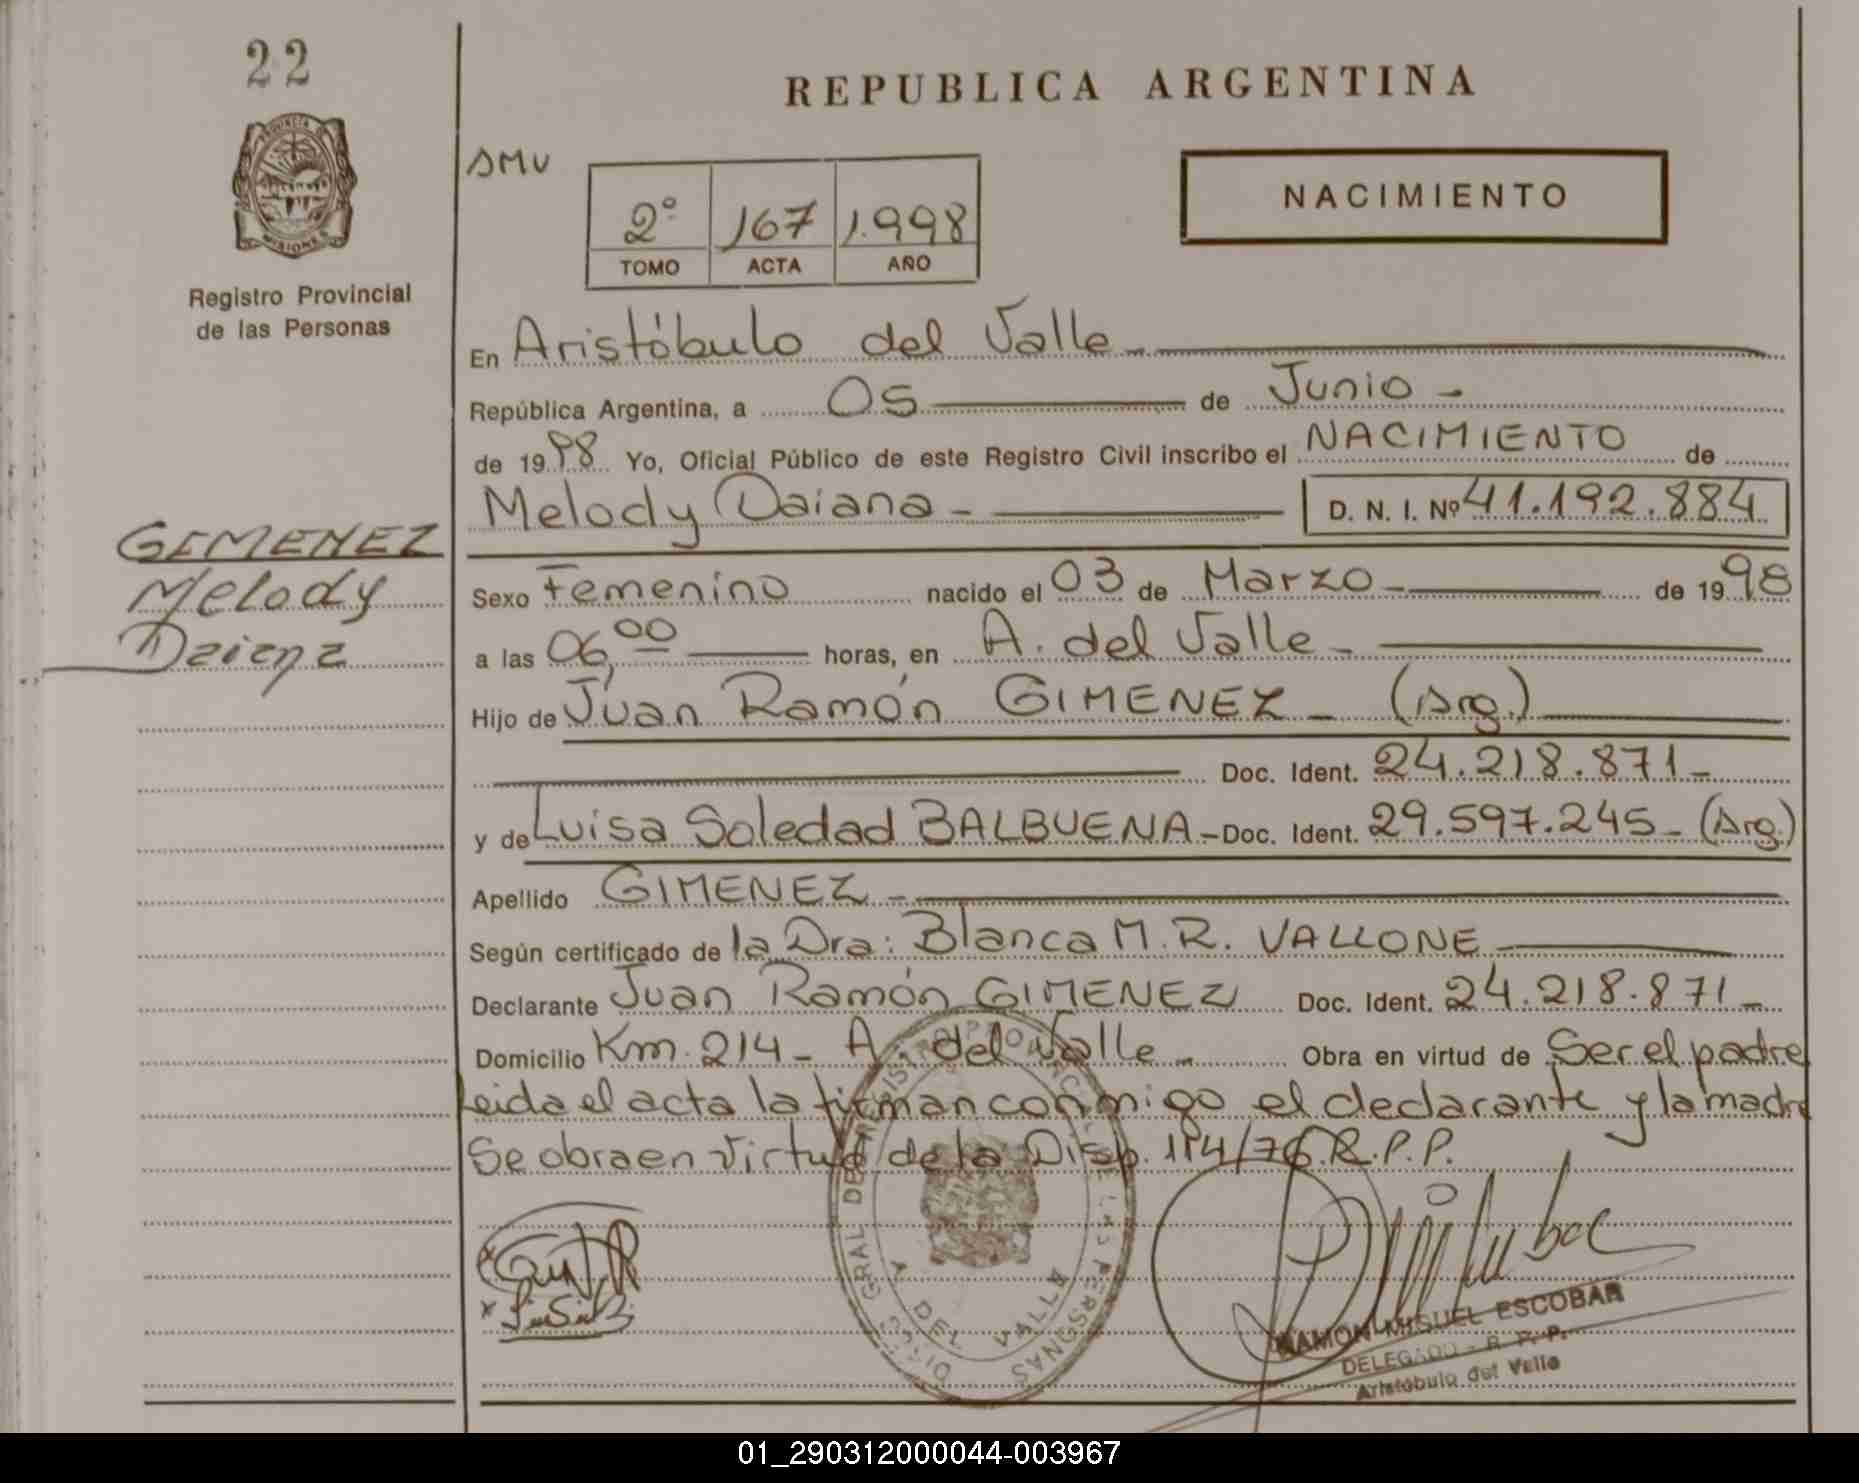 22
PROVINCIA DE
MISIONES
Registro Provincial
de las Personas
GIMENEZ
Melody
Daiana
REPUBLICA ARGENTINA
SMV
2º 167 1.998
TOMO ACTA AÑO
NACIMIENTO
En Aristóbulo del Valle
República Argentina, a 05 de Junio -
de 1998 Yo, Oficial Público de este Registro Civil inscribo el NACIMIENTO de
Melody Daiana - D. N. I. Nº 41.192.884
Sexo Femenino nacido el 03 de Marzo - de 1998
a las 06,00 horas, en A. del Valle -
Hijo de Juan Ramón GIMENEZ - (Arg.)
Doc. Ident. 24.218.871 -
y de Luisa Soledad BALBUENA - Doc. Ident. 29.597.245 - (Arg.)
Apellido GIMENEZ -
Según certificado de la Dra: Blanca M. R. VALLONE
Declarante Juan Ramón GIMENEZ Doc. Ident. 24.218.871 -
Domicilio Km. 214 - A. del Valle - Obra en virtud de Ser el padre
Leida el acta la firman conmigo el declarante y la madre
Se obra en virtud de la Disp. 114/76 R.P.P.
A DEL VALLE
RAMON MIGUEL ESCOBAR
DELEGADO - R. P. P.
Aristóbulo del Valle
01_290312000044-003967